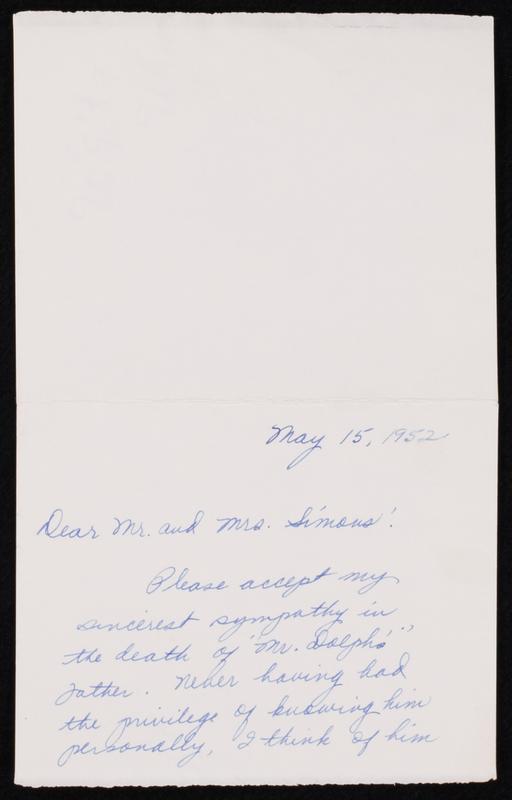 May 15, 1952
Dear Mr. and Mrs. Simons:
Please accept my
sincerest sympathy in
the death of "Mr. Dolph's"
father. Never having had
the privilege of knowing him
personally, I think of him